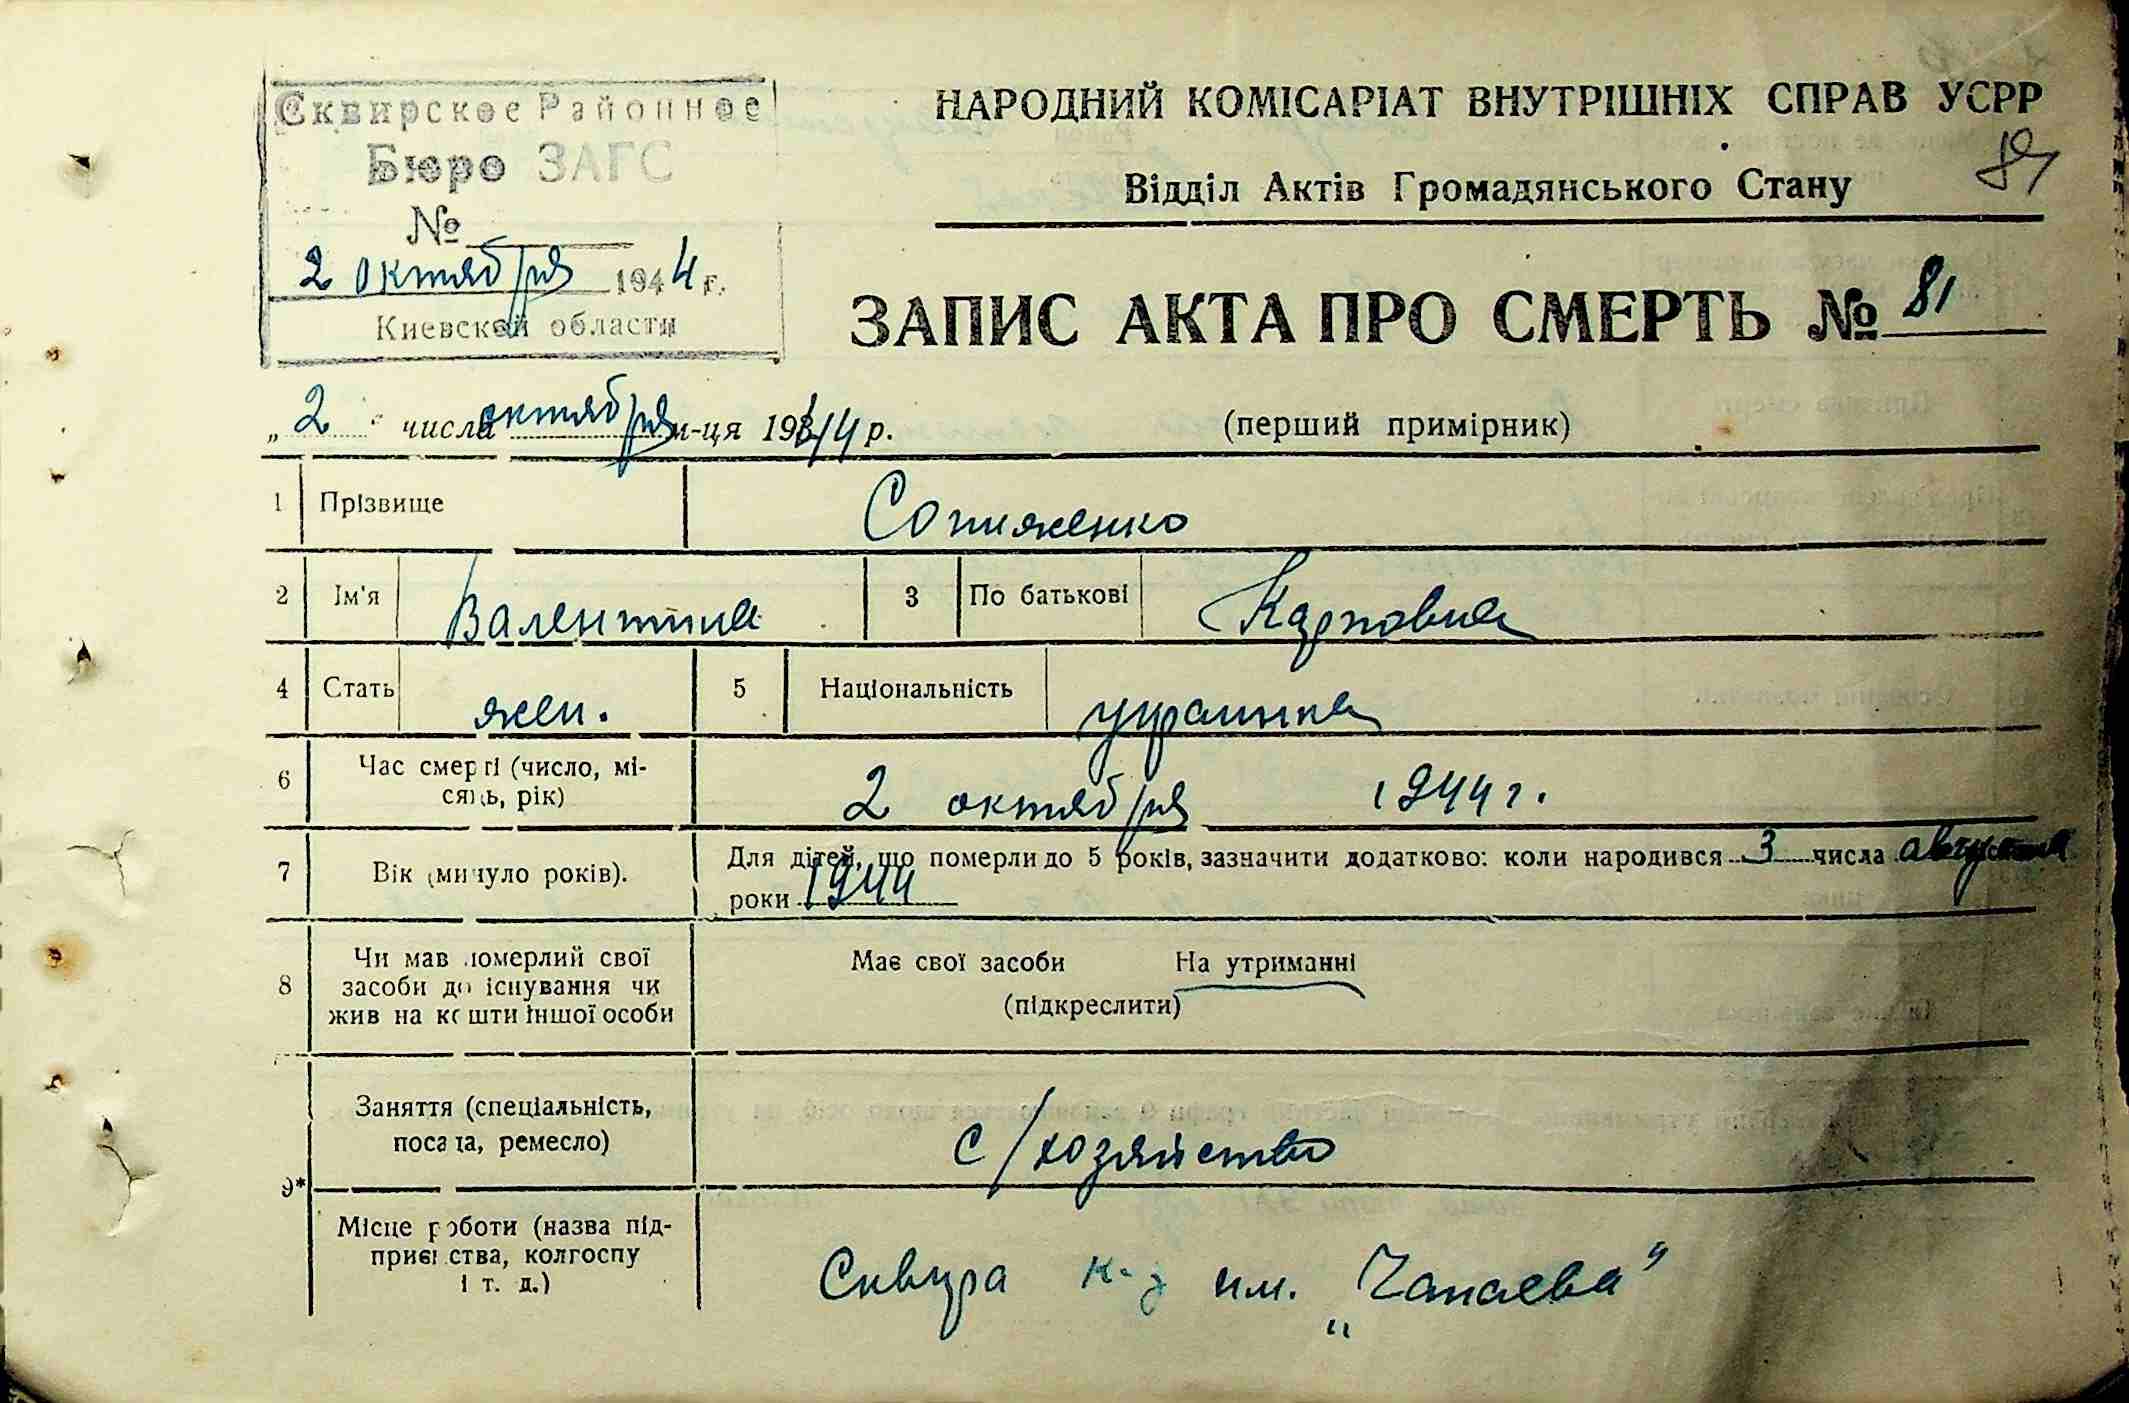 Сквирское Районное
Бюро ЗАГС
№
2 октября 1944 г.
Киевской области
НАРОДНИЙ КОМІСАРІАТ ВНУТРІШНІХ СПРАВ УСРР
Відділ Актів Громадянського Стану
ЗАПИС АКТА ПРО СМЕРТЬ № 81
„2" числа октября м-ця 1944 р. (перший примірник)
1 Прізвище
2 Ім'я Валентина 3 По батькові Карповна
4 Стать жен. 5 Національність украинка
6 Час смерті (число, мі-
сяць, рік) 2 октября 1944 г.
7 Вік (минуло років). Для дітей, що померли до 5 років, зазначити додатково: коли народився 3 числа августа
роки 1944
8 Чи мав померлий свої
засоби до існування чи
жив на кошти іншої особи
Має свої засоби На утриманні
(підкреслити)
9* Заняття (спеціальність,
посада, ремесло) с/хозяйство
Місце роботи (назва під-
приємства, колгоспу
і т. д.) Сквира к-з им. „Чапаева"